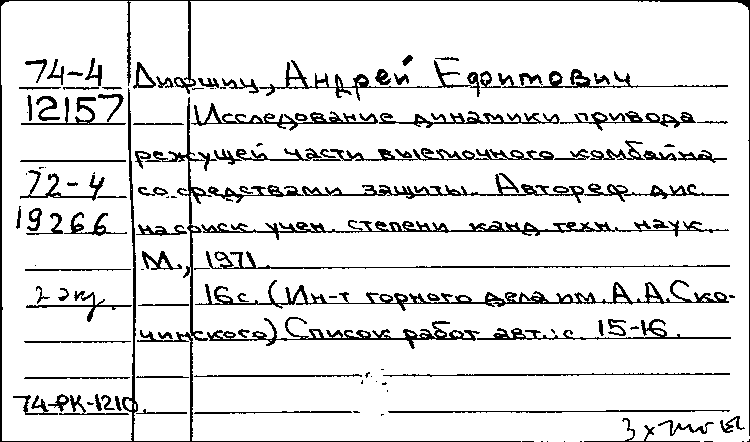 74-4 Лифшиц, Андрей Ефимович
12157 Исследование динамики привода
режущей части выемочного комбайна
72-4 со средствами защиты. Автореф. дис.
19266 на соиск. учен. степени канд. техн. наук.
М., 1971.
2 экз. 16 с. (Ин-т горного дела им. А.А. Ско-
чинского) Список работ авт.: с. 15-16.
74-РК-1210.